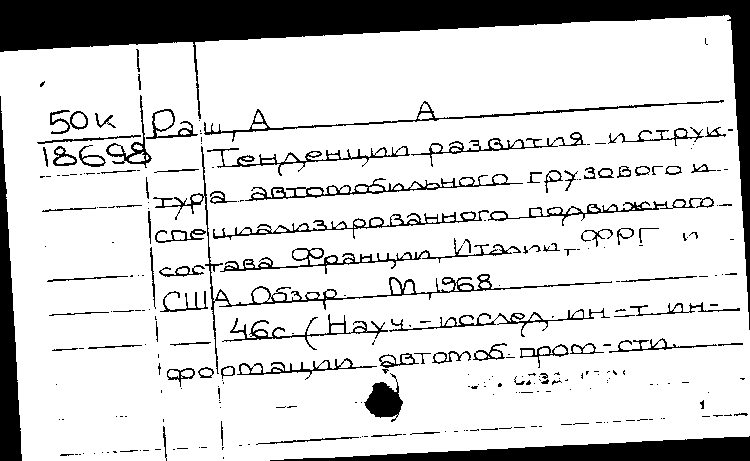 50к Раш, А А
18698 Тенденции развития и струк-
тура автомобильного грузового и
специализированного подвижного
состава Франции, Италии, ФРГ и
США. Обзор. М, 1968
46с. (Науч.-исслед. ин-т ин-
формации автомоб. пром-сти.
См. след.
1